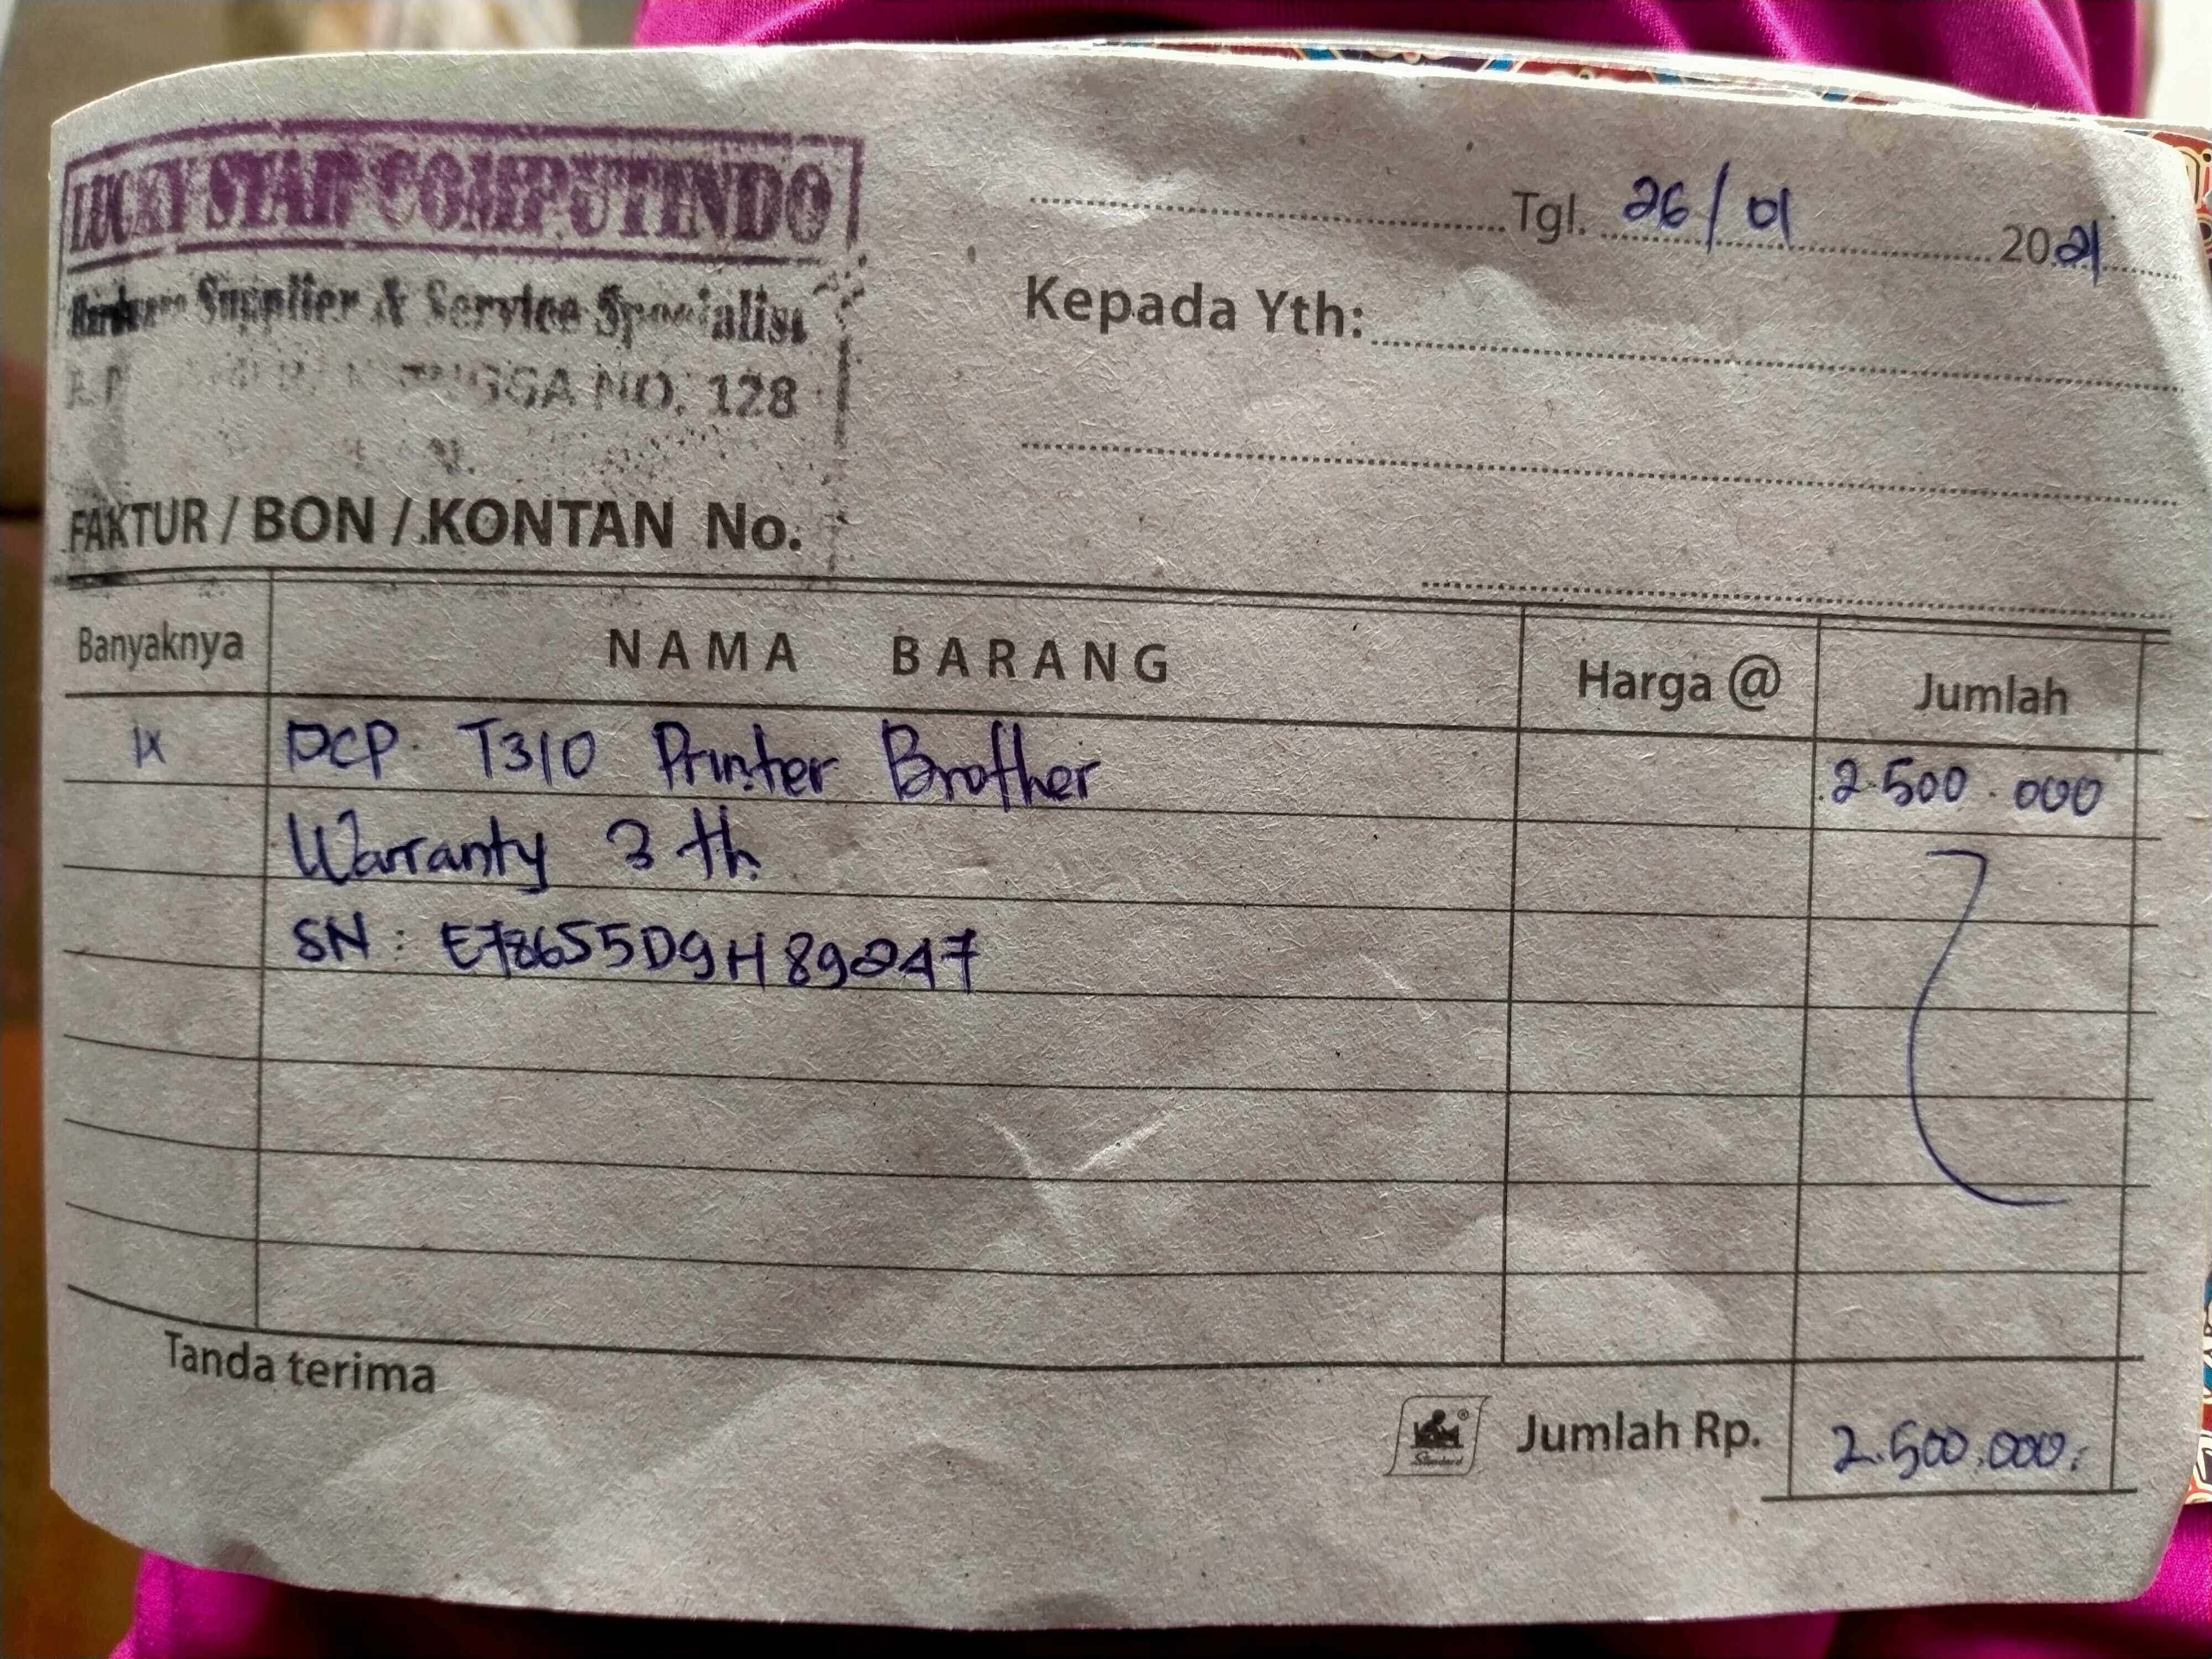 LUCKY STAR COMPUTINDO
Hardware Supplier & Service Specialist
NO. 128
Tgl. 26/01 2021
Kepada Yth:
FAKTUR / BON / KONTAN No.
Banyaknya NAMA BARANG Harga @ Jumlah
1x DCP T310 Printer Brother 2.500.000
Warranty 3 th
SN : E78655D9H89247
Tanda terima
Standard
Jumlah Rp. 2.500.000,